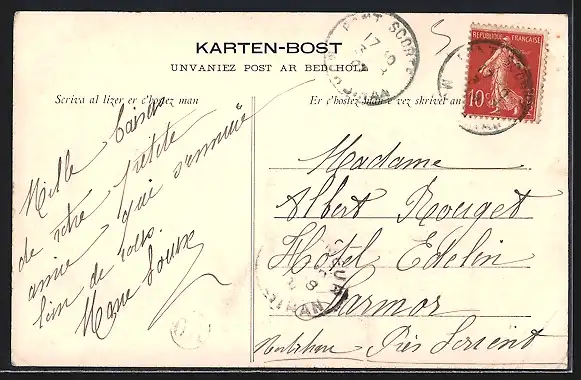 KARTEN-BOST
UNVANIEZ POST AR BED HOLL
Scriva al lizer er c'hostez man
Er c'hostez man e vez skrivet an
PONT SCORFF
17 10
MORBIHAN
REPUBLIQUE FRANÇAISE
10c
Mille baisers
de votre petite
amie qui s'ennuie
loin de vous
Marie Louise
Madame
Albert Rouget
Hôtel Edelin
Larmor
Morbihan Près Lorient